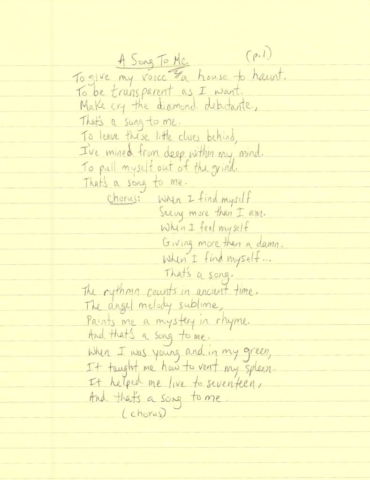 A Song To Me. (p.1)
To give my voice a house to haunt.
To be transparent as I want.
Make cry the diamond debutante,
That's a song to me.
To leave these little clues behind,
I've mined from deep within my mind.
To pull myself out of the grind.
That's a song to me.
Chorus: When I find myself
Seeing more than I am.
When I feel myself
Giving more than a damn.
When I find myself...
That's a song.
The rythmn counts in ancient time.
The angel melody sublime,
Paints me a mystery in rhyme.
And that's a song to me.
When I was young and in my green,
It taught me how to vent my spleen.
It helped me live to seventeen,
And that's a song to me.
(chorus)